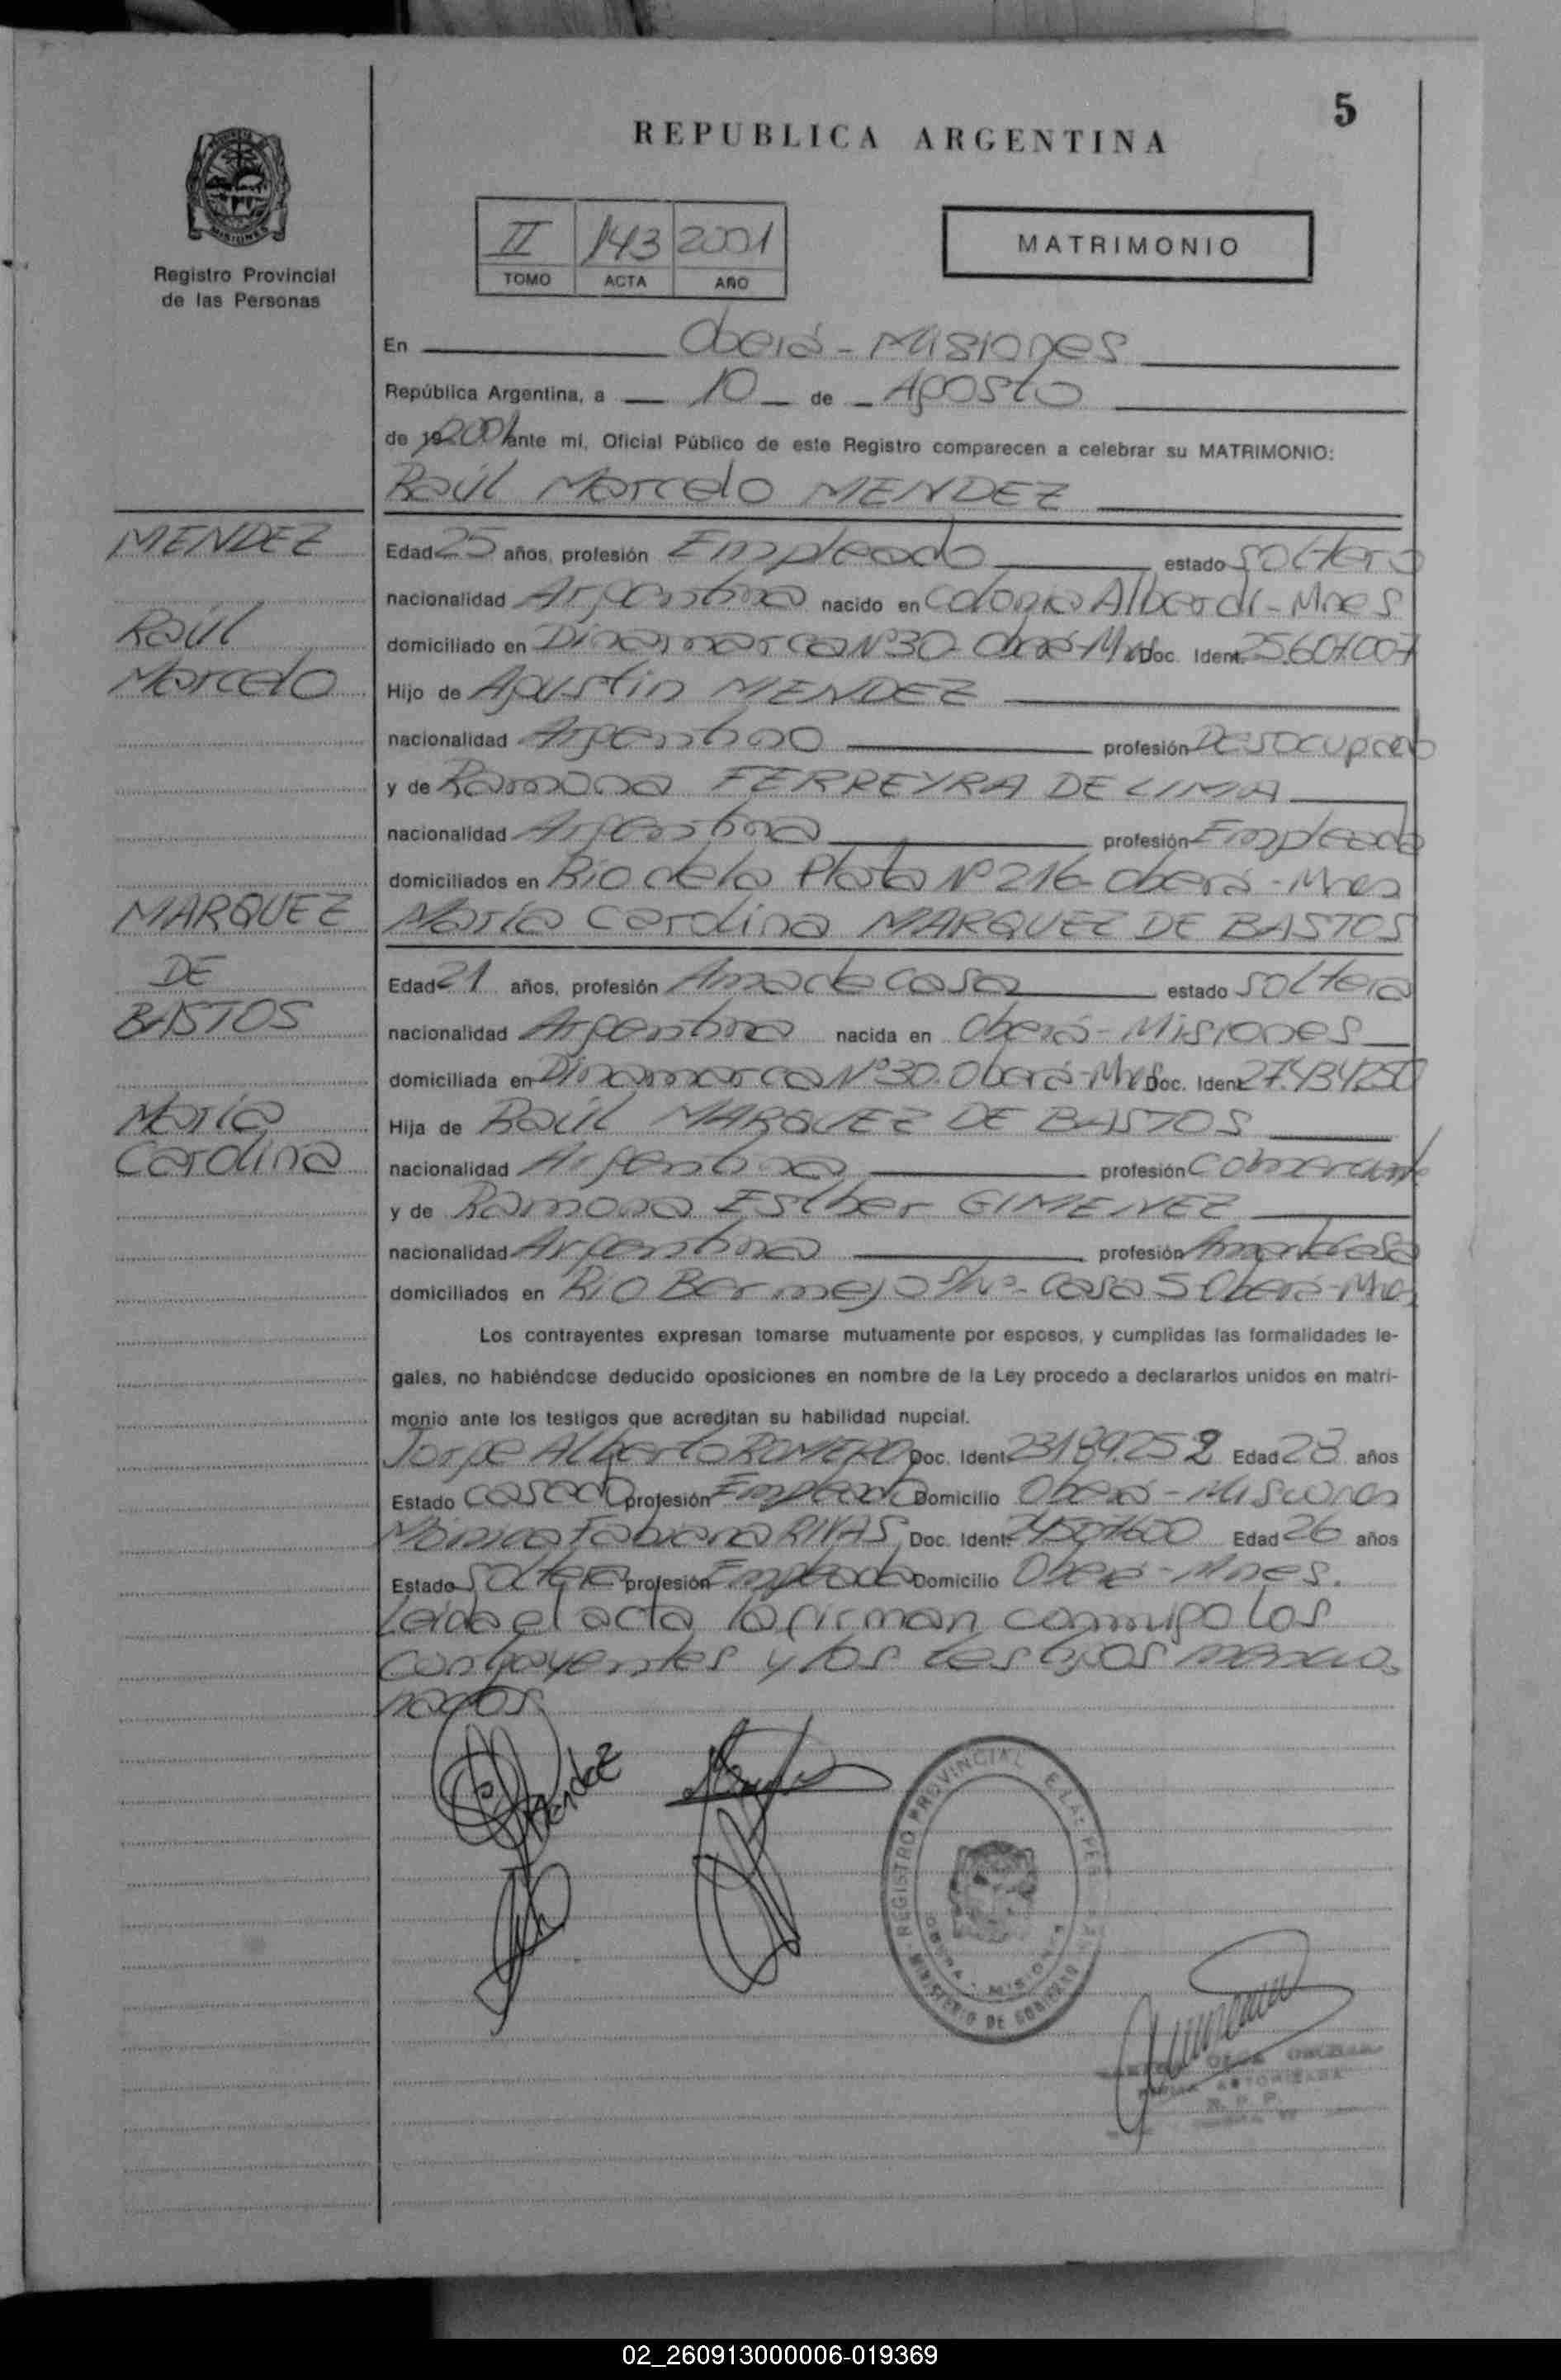 5
REPUBLICA ARGENTINA
MISIONES
Registro Provincial
de las Personas
II 143 2001
TOMO ACTA AÑO
MATRIMONIO
En Oberá - Misiones
República Argentina, a 10 de Agosto
de 19 2001 ante mí, Oficial Público de este Registro comparecen a celebrar su MATRIMONIO:
Raúl Marcelo MENDEZ
MENDEZ
Raúl
Marcelo
Edad 25 años, profesión Empleado estado soltero
nacionalidad Argentina nacido en Colonia Alberdi - Mnes
domiciliado en Dinamarca Nº 30 - Oberá - Mnes Doc. Ident. 25.607.007
Hijo de Agustin MENDEZ
nacionalidad Argentino profesión Desocupado
y de Ramona FERREYRA DE LIMA
nacionalidad Argentina profesión Empleada
domiciliados en Rio de la Plata Nº 216 - Oberá - Mnes
MARQUEZ
DE
BASTOS
María
Carolina
María Carolina MARQUEZ DE BASTOS
Edad 21 años, profesión Ama de casa estado soltera
nacionalidad Argentina nacida en Oberá - Misiones
domiciliada en Dinamarca Nº 30. Oberá - Mnes Doc. Ident. 27.434.250
Hija de Raúl MARQUEZ DE BASTOS
nacionalidad Argentina profesión Comerciante
y de Ramona Esther GIMENEZ
nacionalidad Argentina profesión Ama de casa
domiciliados en Rio Bermejo S/Nº - Casa 5 Oberá - Mnes
Los contrayentes expresan tomarse mutuamente por esposos, y cumplidas las formalidades le-
gales, no habiéndose deducido oposiciones en nombre de la Ley procedo a declararlos unidos en matri-
monio ante los testigos que acreditan su habilidad nupcial.
Jorge Alberto ROMERO Doc. Ident. 23.189.252 Edad 28 años
Estado casado profesión Empleado Domicilio Oberá - Misiones
Mónica Fabiana RIVAS Doc. Ident. 24.507.600 Edad 26 años
Estado soltera profesión Empleada Domicilio Oberá - Mnes.
Leida el acta la firman conmigo los
contrayentes y los testigos mencio-
nados
Mendez
REGISTRO PROVINCIAL DE LAS PER
OBERA - MISIONES
MINISTERIO DE GOBIERNO
OLGA
FIRMA AUTORIZADA
R. P. P.
02_260913000006-019369